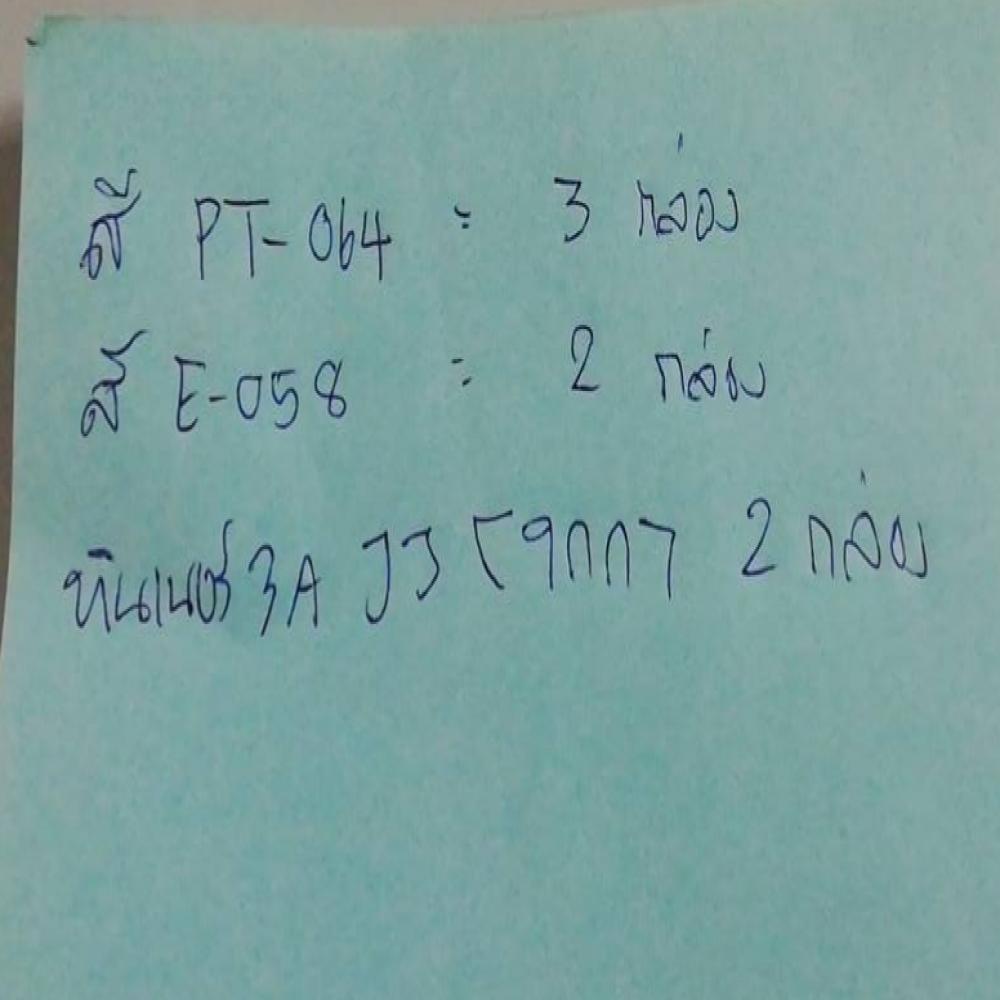 สี PT-064 : 3 กล่อง
สี E-058 : 2 กล่อง
ทินเนอร์ 3A JJ 2 กล่อง